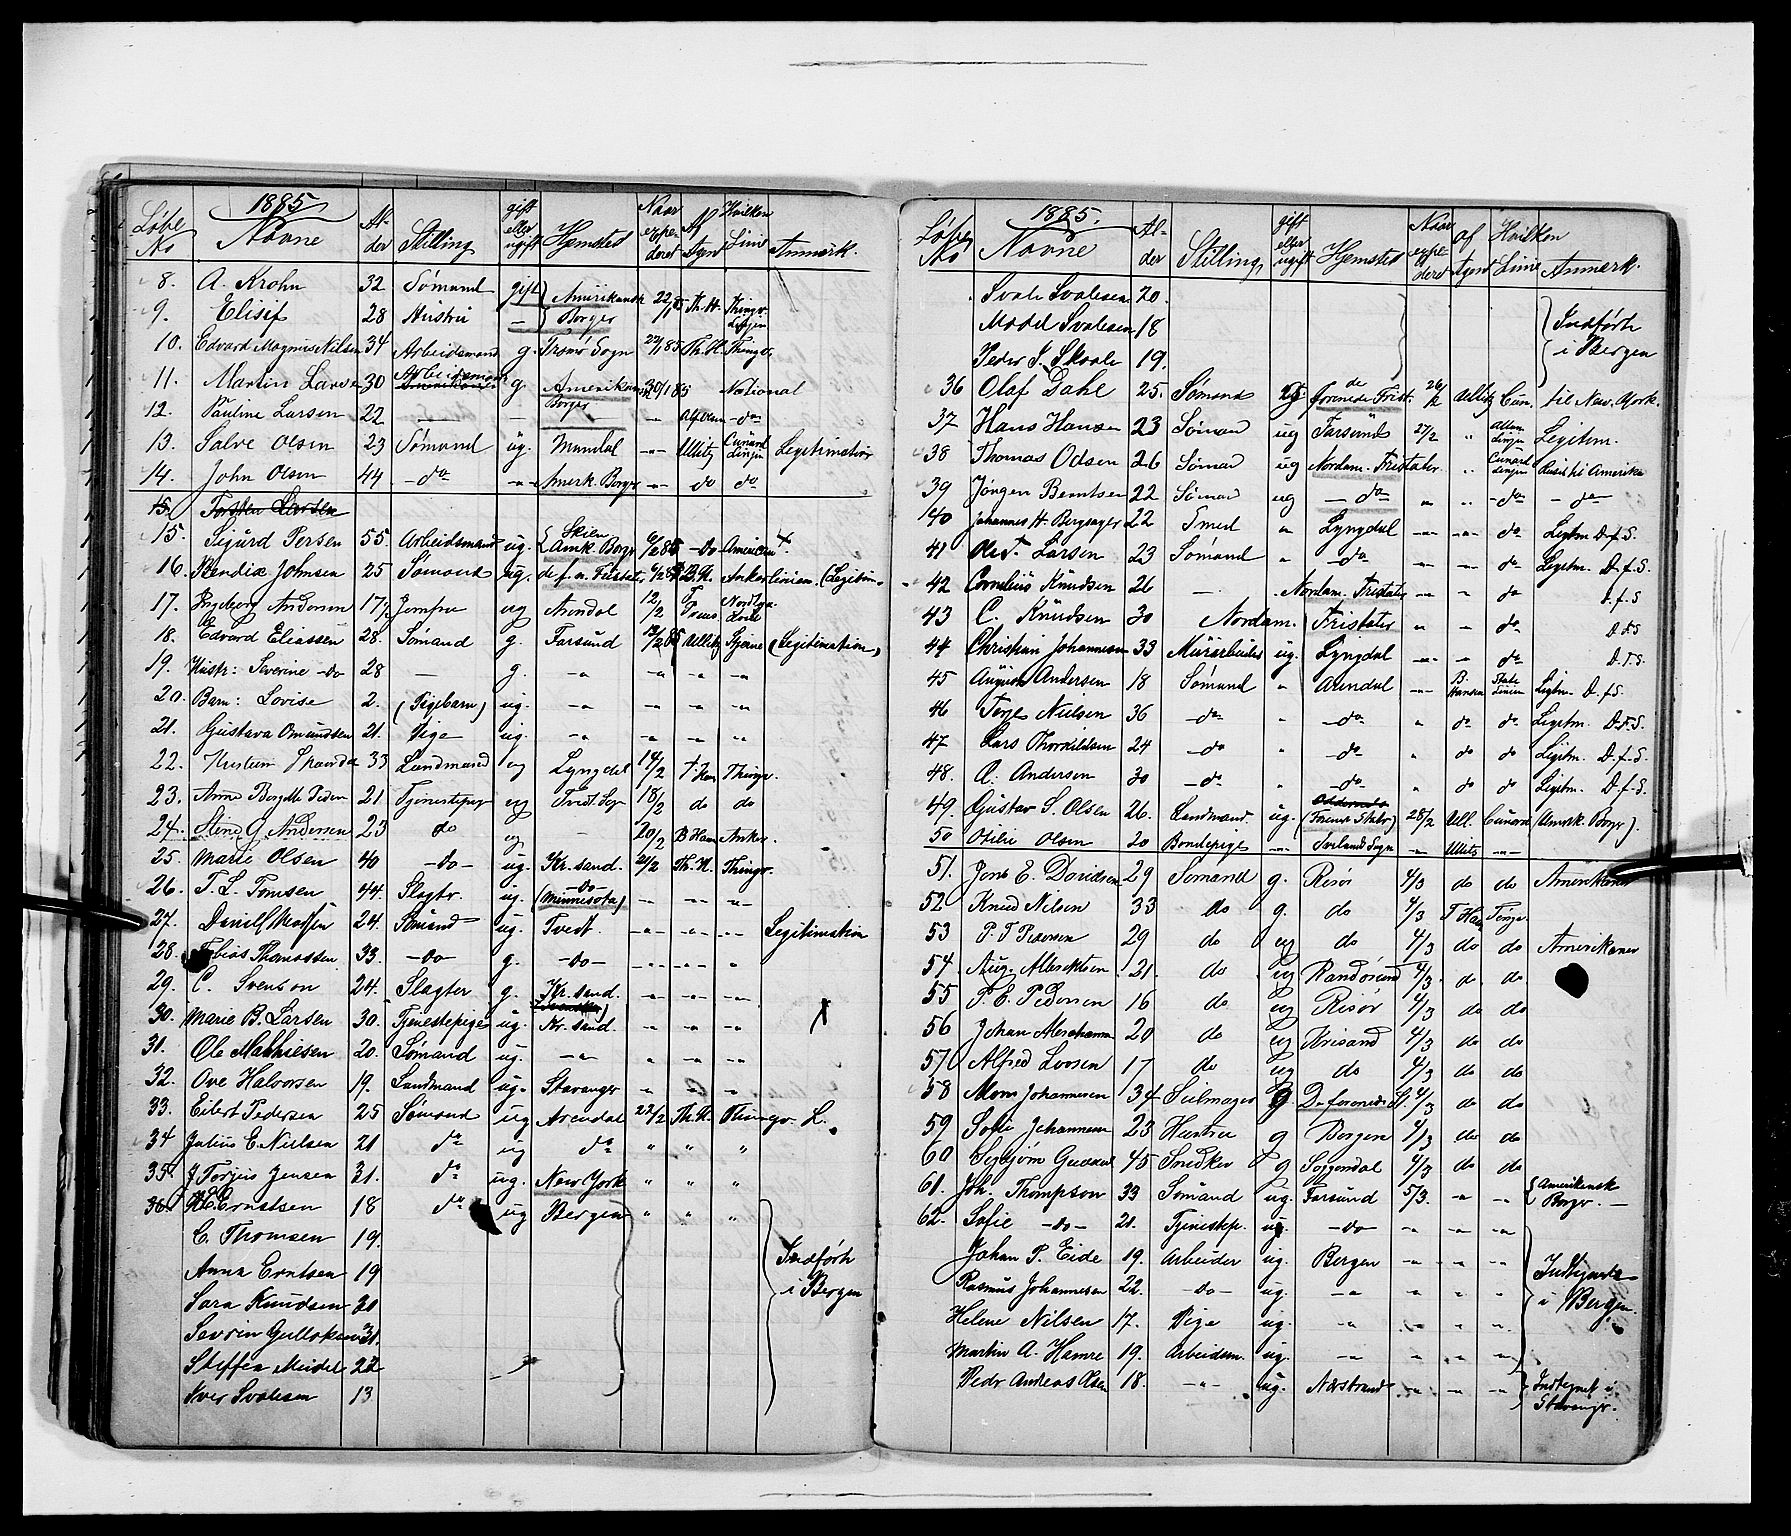 1885
Løbe No Navne Alder Stilling gift eller ugift Hjemsted Naar expederet Af Agent Hvilken Linie Anmærk.
8. A. Krohn 32 Sømand gift Amerikansk 22/1 85 Th. H. Thingv.
9. Elisif 28 Hustru — Borger Linjen
10. Edvard Magnus Nilsen 34 Arbeidsmand g. Tromø Sogn 22/1 85 Th. H. Thingv.
11. Martin Larsen 30 Arbeidsmand g. Amerikansk Borger 30/1 85 National
12. Pauline Larsen 22 — — — do
13. Salve Olsen 23 Sømand ug. Mandal -"- Ullitz Cunard Linjen Legitimation
14. John Olsen 44 -do- -"- Amerk. Borger -"- do do
15. Torsten Larsen
15. Sigurd Persen 55. Arbeidsmand ug. Skien Amk. Borger 6/2 85 -do- American
16. Bendix Johnsen 25 Sømand ug. de f. n. Fristat. 6/2 85 B.H. Ankerlinien. (Legitim.
17. Ingeborg Andersen 17½ Jomfru ug Arendal 12/2
18. Edvard Eliassen 28. Sømand g. Farsund 12/2 85 Ullitz Stjerne (Legitimation)
19. Hustr: Severine -do- 28 — g. -"- -"- -"- -"-
20. Barn: Lovise 2. (Pigebarn) ug. -"- -"- -"- -"-
21. Gustava Omundsen 21. Pige ug. -"- -"- -"- "
22. 33 Landmand ug Lyngdal 14/2 T. Han Thingv.
23. Anne Bergitte Peder 21 Tjenestepige ug Tvedt Sog 18/2 do do
24. Stine G. Andersen 23 do ug — 20/2 B Han Anker.
25. Marie Olsen 40 -do- ug. Kr. sand. 21/2 Th. H. Thingv.
26. T. L. Tomsen 44. Slagtr. ug. -do- (Minnesota) -"- -"- -"-
27. Daniel Madsen 24. Sømand ug. Tvedt. -"- -"- -"- Legitimation
28. Tobias Thomassen 33. -do- g. -do- -"- -"- "
29. C. Svenson 24. Slagter g. Kr. sand. (Svensken) -"- -"- -"-
30. Marie B. Larsen 30. Tjenestepige ug. Kr. sand. -"- -"- -"- X
31. Ole Mathiesen 20. Sømand ug. -"- " -"- -"-
32. Ove Halvorsen 19. Landmand ug. Stavanger " " -"-
33. Eilert Pedersen 25 Sømand ug Arendal 22/2 Th. H. Thingv. L.
34 Julius E. Nielsen 21 do ug do " " "
35. J Torjus Jensen 31. do ug. New York " " "
36. Erntsen 18 do ug Bergen " " "
C. Thomsen 19.
Anna Erntsen 19 Indførte
Sara Knudsen 20 i Bergen
Sevrin 21.
Steffen Meidel 22
Iver Svalesen 13
1885.
Løbe No Navne Alder Stilling gift eller ugift Hjemsted Naar expederet Af Agent Hvilken Linie Anmærk.
Svale Svalesen 20.
18 Indførte
Peder S. Skaale 19. i Bergen
36 Olaf Dahl 25. Sømand ug de forenede Frist. 26/2 Ullitz Cun. til New York.
37 Hans Hansen 23 Sømand ug Farsund 27/2 " Allan Linjen Legitm.
38 Thomas Odsen 26 Sømand ug Nordam. Fristater " Cunard Linjen Reise til Amerika
39 Jørgen Berntsen 22 Sømand ug -do- " " -do- -do-
40 Johannes H. Bergsager 22 Smed " Lyngdal -"- -"- do Legitm D.f.S.
41 Ole T. Larsen 23 Sømand " do -"- -"- do Legitm. D.f.S.
42 Cornelius Knudsen 26 — Nordam. Fristater -"- " do D.f.S
43 C. Knudsen 30 Nordam. Fristater " -"- do D.f.S
44 Christian Johannesen 33 Murarbeider ug. Lyngdal -"- -"- do D.f.S.
45 August Andersen 18 Sømand " Arendal -"- B. Hansen State Linien Legitm. D.f.S.
46 Terje Nielsen 36 -do- " -do- " do do Legitm. D.f.S.
47 Lars Thorkildsen 24 -do " -do " do do Legitm. D.f.S.
48. A. Andersen 30 -do " -do- " do do Legitm. D.f.S.
49. Gustav S. Olsen 26. Landmand. ug. (Forened Stater) 28/2 Ull. Cunard (Amerk. Borger).
50 Otilie Olsen 20 Bondepige -"- Iveland Sogn -"- Ullitz -"-
51. Jens E. Davidsen 29 Sømand g. Risør 4/3 do do Amerikaner
52 Knud Nilsen 33 do g. do 4/3 T Han Tingv.
53 P. T Pedersen 29 do ug do 4/3 do do Amerikaner
54. Aug. Albrektsen 21. do ug Randøsund 4/3. do do
55 P. E. Pedersen 16 do ug Risør 4/3 do do
56 Johan Abrahamsen 20 do ug Krisand 4/3 do do
57 Alfred Larsen 17 do ug do 4/3 do do
58 Mons Johannesen 34 Seilmager g D. forenede St. 4/3 do do
59 Sofie Johannesen 23 Hustru g Bergen 4/3 do do
60 45 Snedker g Sogndal 4/3 do do
61. Joh. Thompson 33 Sømand ug. Farsund 5/3. -"- -"- Amerikansk Borger. —
62. Sofie -do- 21. Tjenestep. ug. -do -"- -"- -"-
Johan P. Eide 19. Arbeider ug. Bergen -"- -"- -"- Indtegnede
Rasmus Johannesen 22. -do- ug. -"- -"- " " i Bergen.
Helene Nilsen 17. Pige ug. -"- -"- " -"-
Martin A. Hamre 19. Arbeidsm. ug. -"- -"- -"- -"-
Pedr Andreas Olsen 18. -"- ug. Nærstrand -"- -"- -"- Indtegnet i Stavanger.